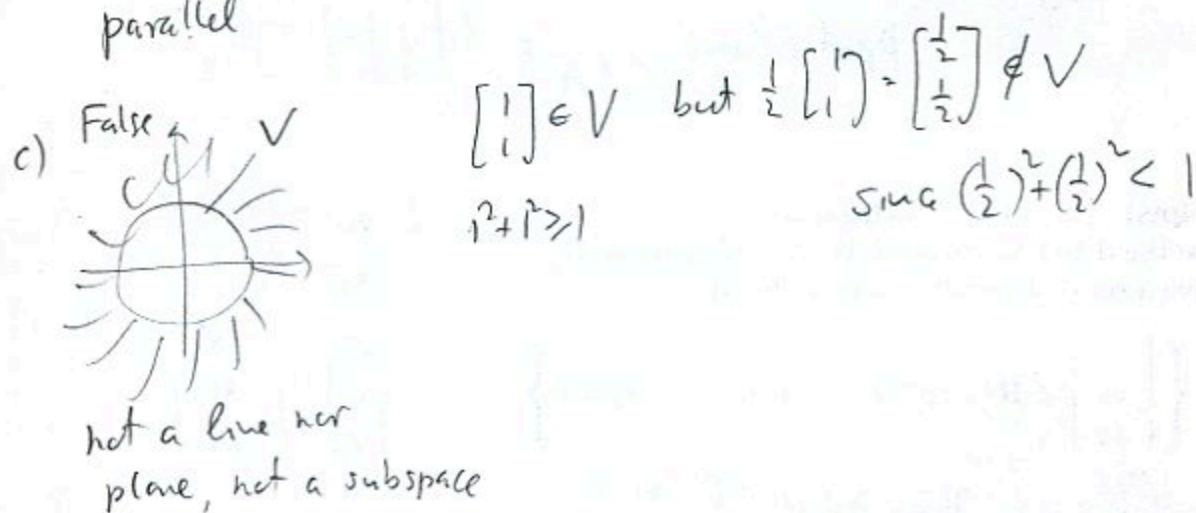 parallel
c) False V
[1 1] ∈ V but 1/2 [1 1] = [1/2 1/2] ∉ V
1²+1²⩾1
sinc (1/2)²+(1/2)² < 1
not a line nor
plane, not a subspace